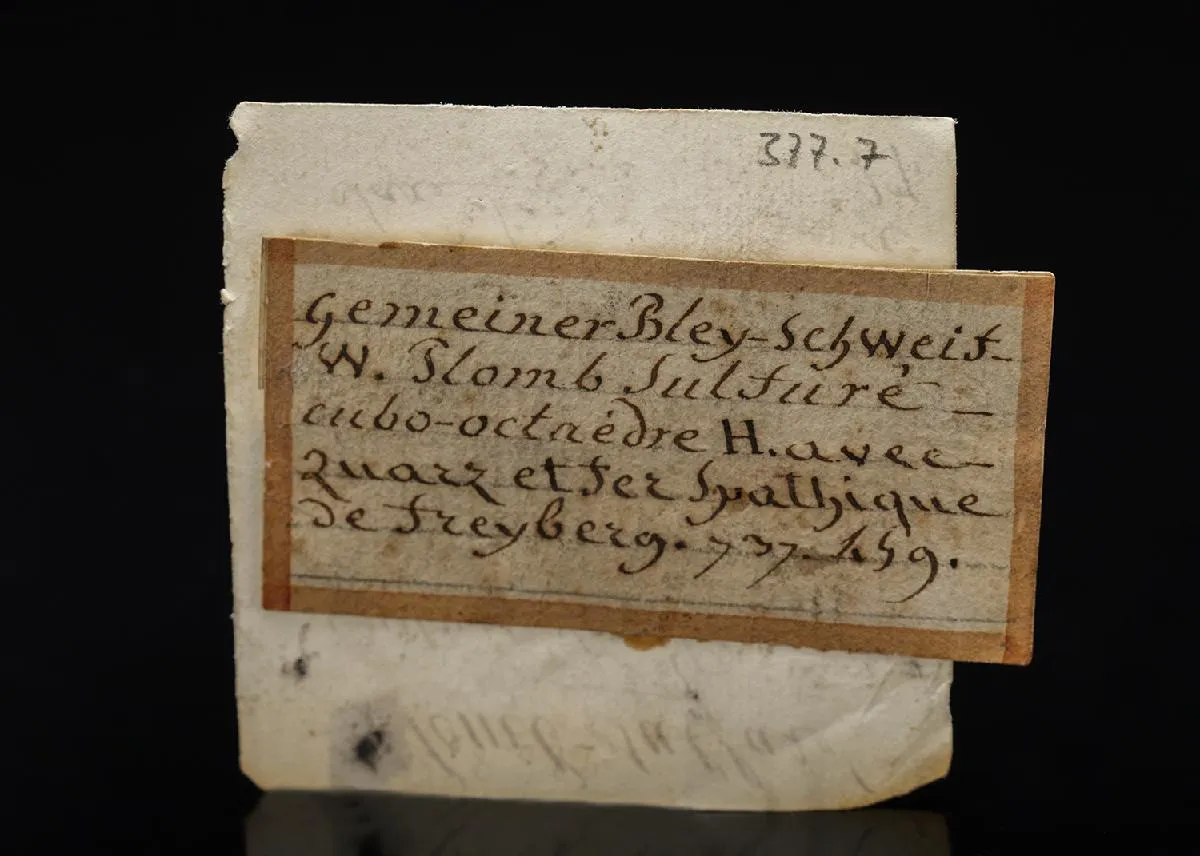 377.7
Gemeiner Bley-Schweif-
W. Plomb Sulfuré -
cubo-octaèdre H. avec-
Quarz et Fer Spathique
de Freyberg. 737. 459.